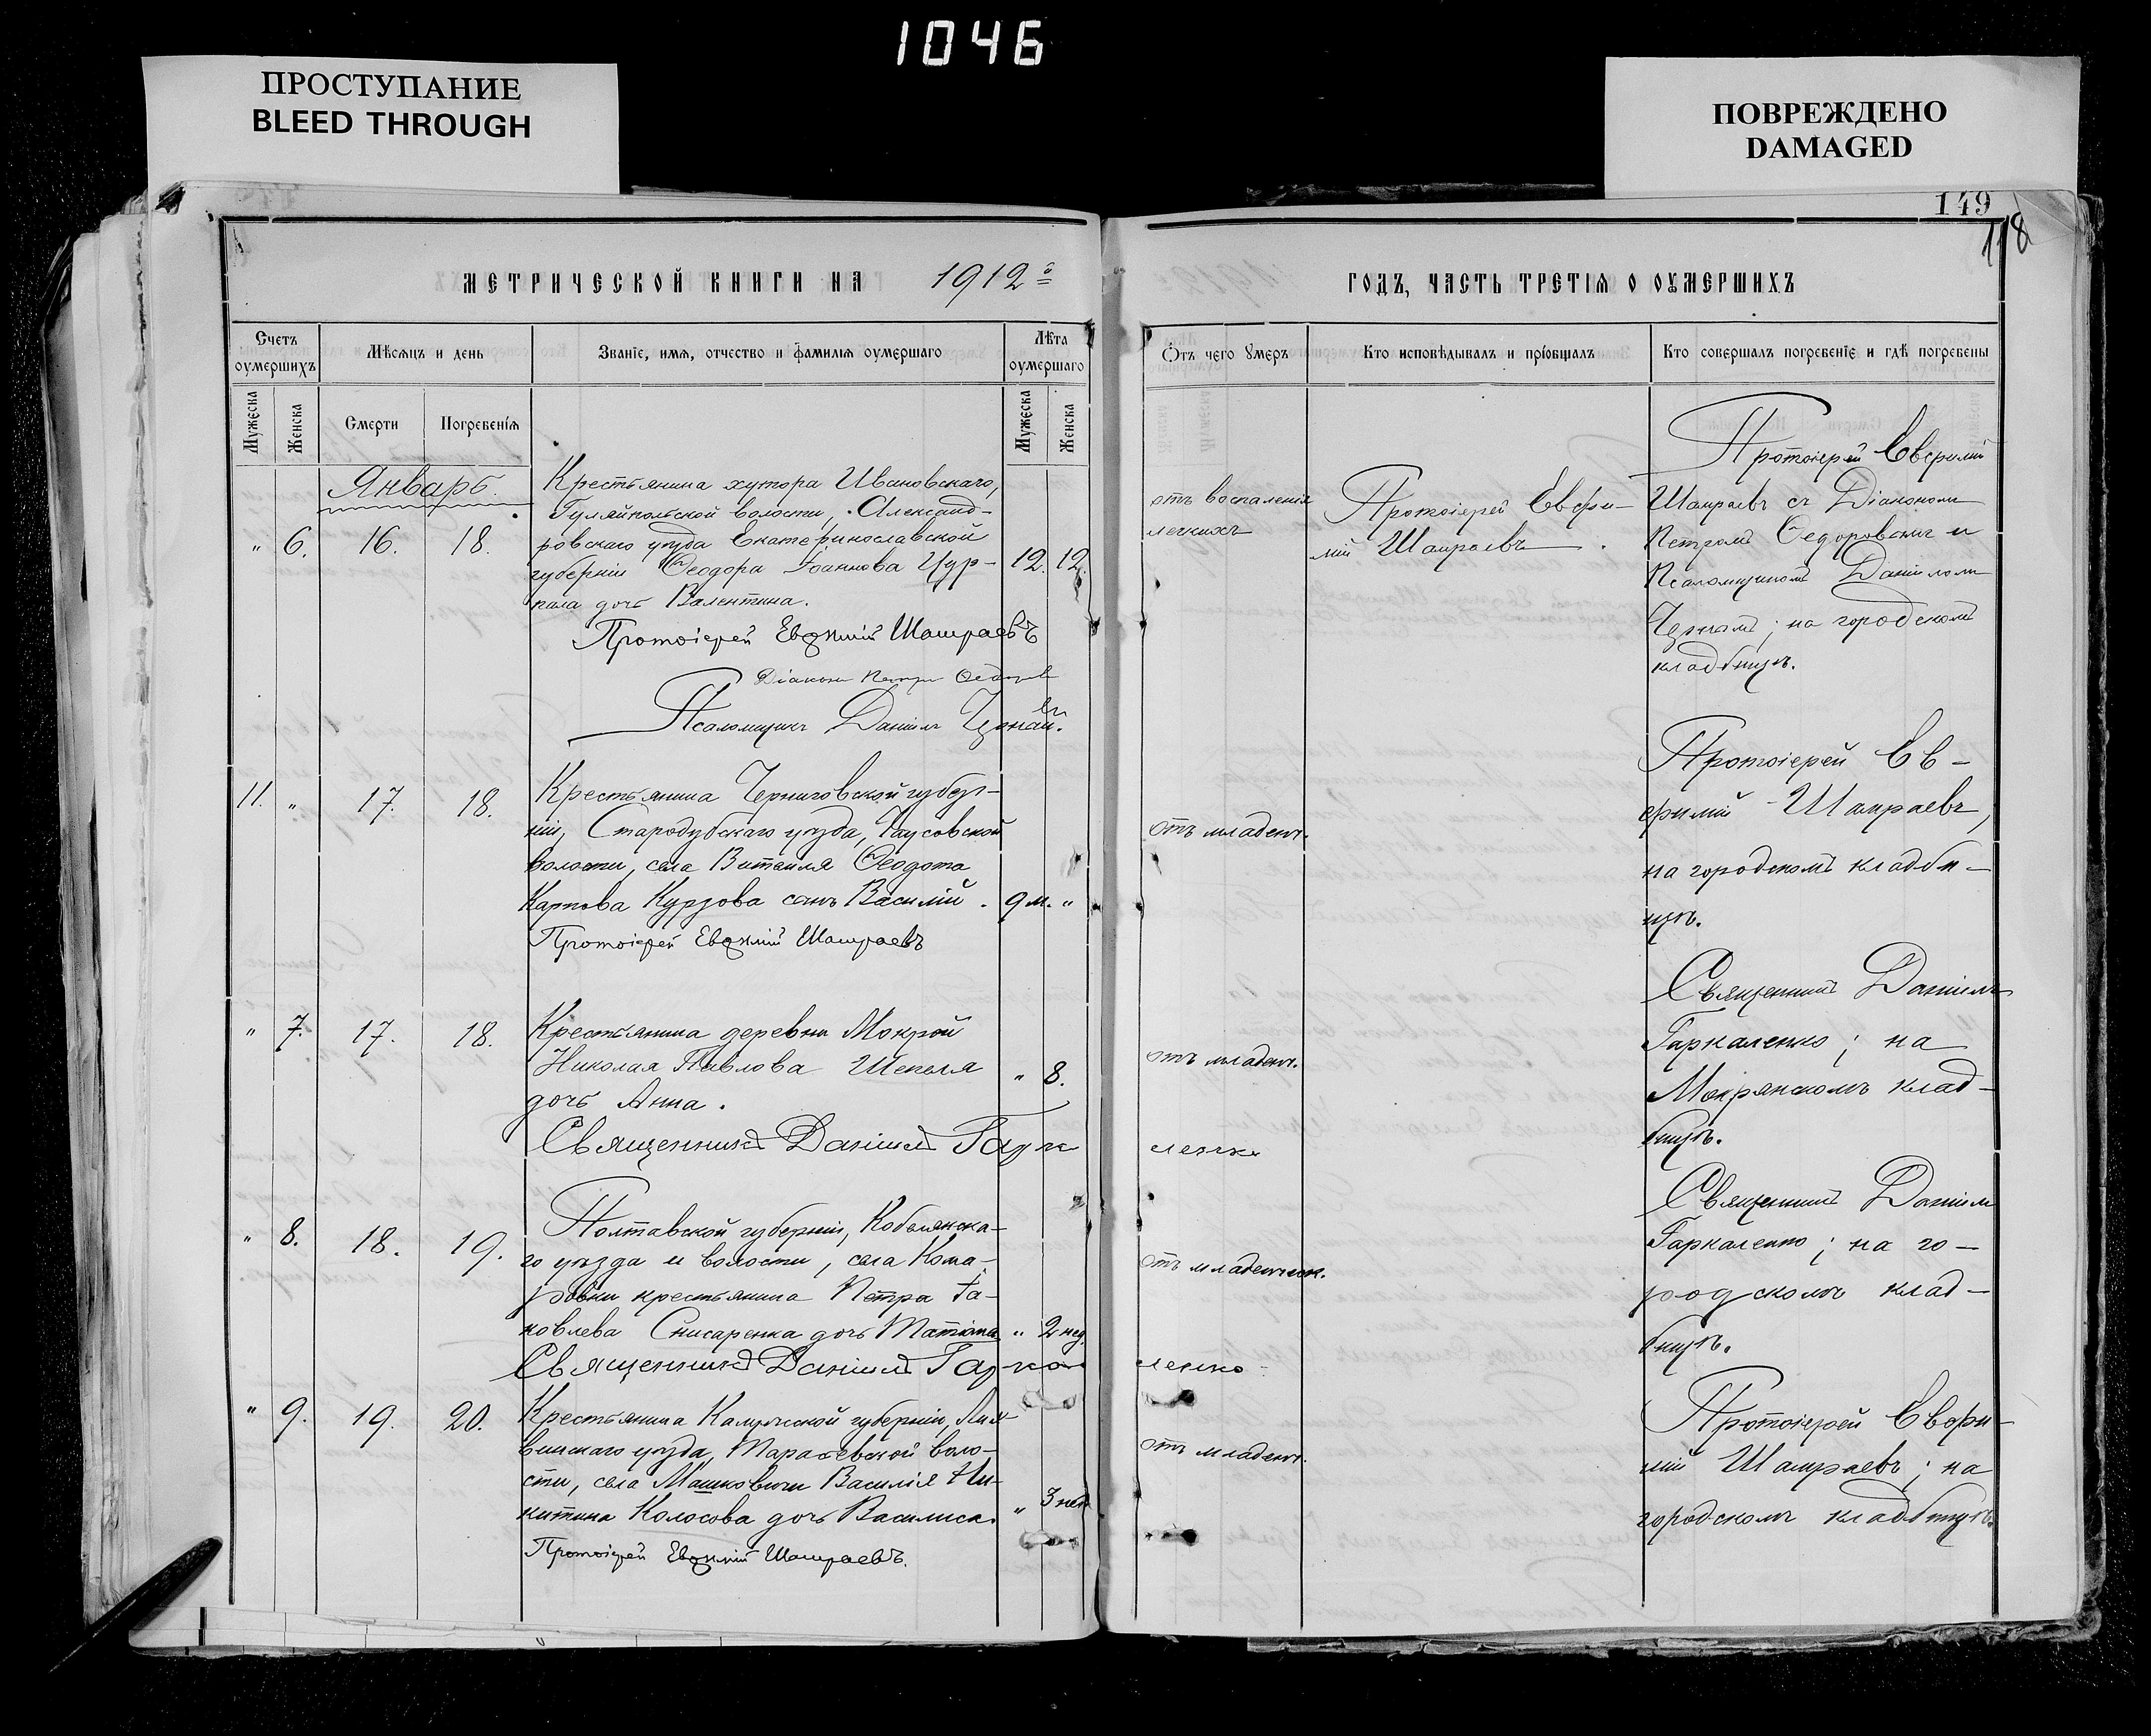 1046
ПРОСТУПАНИЕ
BLEED THROUGH
ПОВРЕЖДЕНО
DAMAGED
149
118
МЕТРИЧЕСКОЙ КНИГИ НА 1912 й
ГОДЪ, ЧАСТЬ ТРЕТІѦ О ОУМЕРШИХЪ
Счетъ оумершихъ
Мѣсѧцъ и день
Званіе, имѧ, отчество и фамиліѧ оумершаго
Лѣта оумершаго
Отъ чего умеръ
Кто исповѣдывалъ и пріобщалъ
Кто совершалъ погребеніе и гдѣ погребены
Мужеска
Женска
Смерти
Погребеніѧ
Мужеска
Женска
Январь.
" 6. 16. 18.
Крестьянина хутора Ивановскаго,
Гуляйпольской волости, Александ-
ровскаго уѣзда Екатеринославской
губерніи Ѳеодора Іоаннова Цур-
кала дочь Валентина.
12. 12.
Протоіерей Евѳимій Шамраевъ
Діаконъ Петръ Ѳедоровъ
Псаломщикъ Даніилъ
отъ воспаленія
легкихъ
Протоіерей Евфи-
мій Шамраевъ.
Протоіерей Евфимій
Шамраевъ съ Діакономъ
Петромъ Ѳедоровымъ и
Псаломщикомъ Даніиломъ
на городскомъ
кладбищѣ.
11. " 17. 18.
Крестьянина Черниговской губер-
ніи, Стародубскаго уѣзда,
волости, села Витемля Ѳеодота
Карпова Курзова сынъ Василій.
9 м. "
Протоіерей Евѳимій Шамраевъ
отъ младенч.
Протоіерей Ев-
фимій Шамраевъ,
на городскомъ кладби-
щѣ.
" 7. 17. 18.
Крестьянина деревни Мокрой
Николая Павлова Шепеля
дочь Анна.
" 8.
Священникъ Даніилъ Гарка
ленко
отъ младенч.
Священникъ Даніилъ
Гаркаленко; на
Мокрянскомъ клад-
бищѣ.
" 8. 18. 19.
Полтавской губерніи, Кобелякска-
го уѣзда и волости, села Кома-
ровки крестьянина Петра Іа-
ковлева Снисаренка дочь Татіана.
" 2 нед.
Священникъ Даніилъ Гарка
ленко
отъ младенческ.
Священникъ Даніилъ
Гаркаленко; на го-
родскомъ клад-
бищѣ.
" 9. 19. 20.
Крестьянина Калужской губерніи, Лих-
винскаго уѣзда, волo-
сти, села Машковичи Василія Ни-
китина Колосова дочь Василиса.
" 3 нед.
Протоіерей Евѳимій Шамраевъ.
отъ младенч.
Протоіерей Евфи-
мій Шамраевъ; на
городскомъ кладбищѣ.